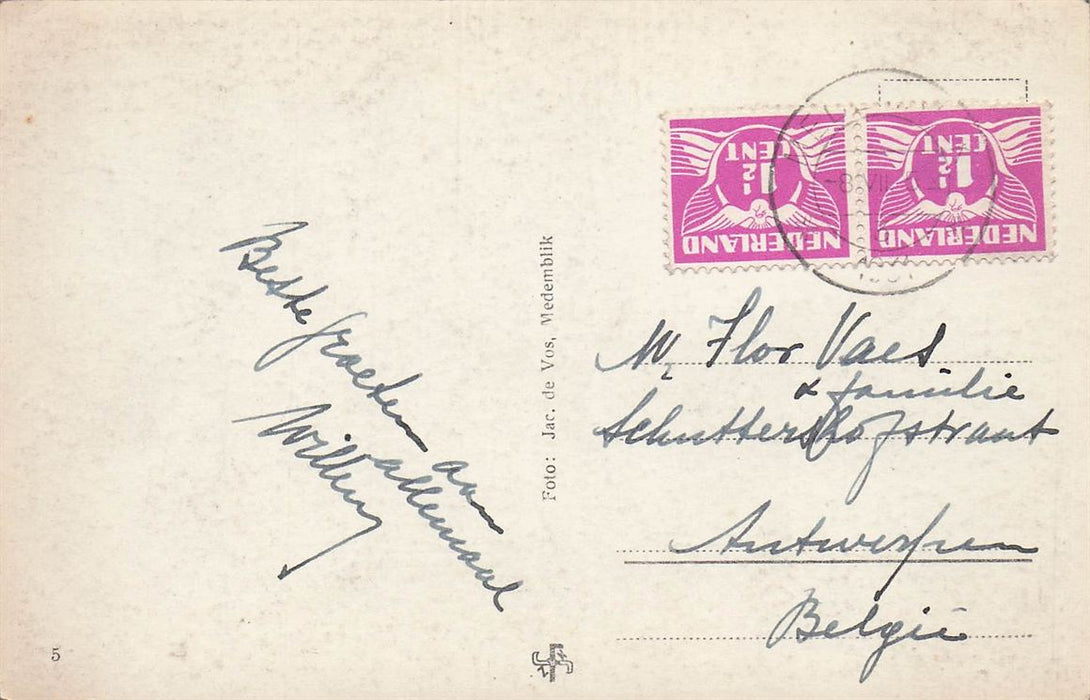 Beste groeten
aan
allemaal
Willy
Foto: Jac. de Vos, Medemblik
5
1½
CENT
NEDERLAND
1½
CENT
NEDERLAND
-8 VII
Mr Flor Vaes
& familie
Schuttershofstraat
Antwerpen
België